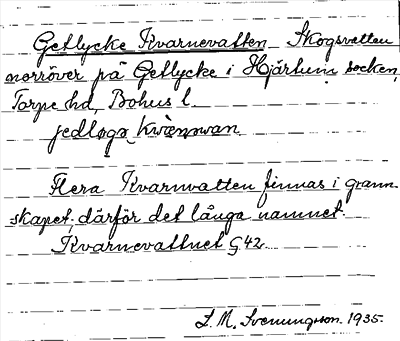 Getlycke Kvarnevatten Skogsvatten
norröver på Getlycke i Hjärtums socken,
Torpe hd, Bohus l.
jedløgə
Flera Kvarnvatten finnas i grann-
skapet, därför det långa namnet.
Kvarnevattnet G 42
L. M. Svenungsson. 1935.